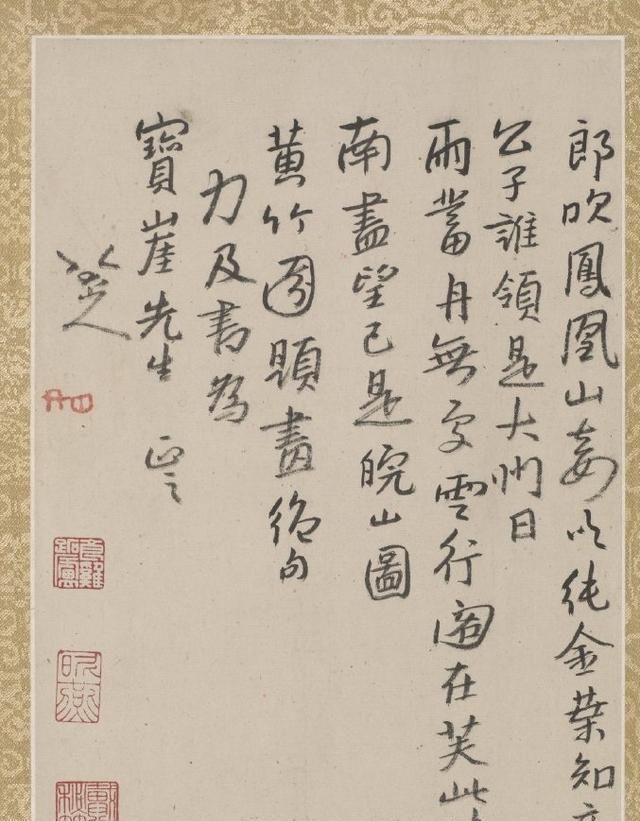 郎吹鳳凰山妾純金葉知
公子誰領是大州日
雨無處雲行在芙此
南盡望已是皖山圖
黃竹園題畫絕句
力及書為
寶崖先生 正之
八大山人